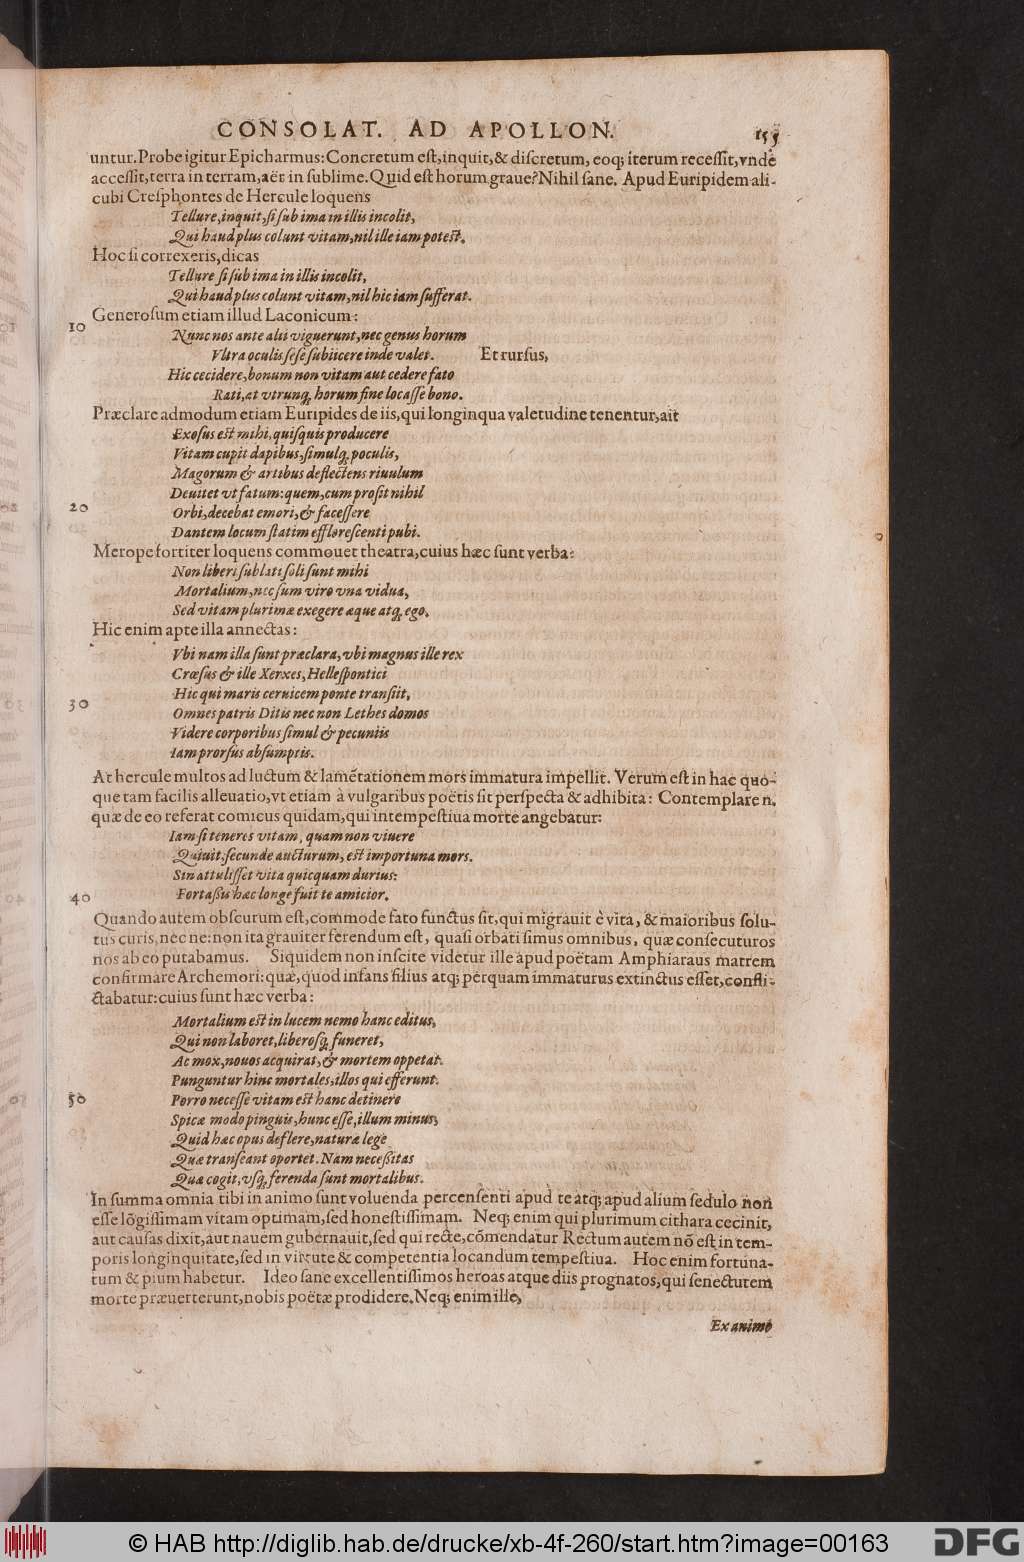 CONSOLAT. AD APOLLON. 155
untur. Probe igitur Epicharmus: Concretum est, inquit, & discretum, eoq; iterum recessit, vnde
accessit, terra in terram, aër in sublime. Quid est horum graue? Nihil sane. Apud Euripidem ali-
cubi Cresphontes de Hercule loquens
Tellure, inquit, si sub ima in illis incolit,
Qui haud plus colunt vitam, nil ille iam potest.
Hoc si correxeris, dicas
Tellure si sub ima in illis incolit,
Qui haud plus colunt vitam, nil hic iam sufferat.
Generosum etiam illud Laconicum:
10 Nunc nos ante alii viguerunt, nec genus horum
Vltra oculis sese subiicere inde valet. Et rursus,
Hic cecidere, bonum non vitam aut cedere fato
Rati, at vtrunq; horum fine locasse bono.
Præclare admodum etiam Euripides de iis, qui longinqua valetudine tenentur, ait
Exosus est mihi, quisquis producere
Vitam cupit dapibus, simulq; poculis,
Magorum & artibus deflectens riuulum
Deuitet vt fatum: quem, cum prosit nihil
20 Orbi, decebat emori, & facessere
Dantem locum statim efflorescenti pubi.
Merope fortiter loquens commouet theatra, cuius hæc sunt verba:
Non liberi sublati soli sunt mihi
Mortalium, nec sum viro vna vidua,
Sed vitam plurimæ exegere æque atq; ego.
Hic enim apte illa annectas:
Vbi nam illa sunt præclara, vbi magnus ille rex
Crœsus & ille Xerxes, Hellespontici
30 Hic qui maris ceruicem ponte transiit,
Omnes patris Ditis nec non Lethes domos
Videre corporibus simul & pecuniis
Iam prorsus absumptis.
At hercule multos ad luctum & lamētationem mors immatura impellit. Verum est in hac quo-
que tam facilis alleuatio, vt etiam à vulgaribus poëtis sit perspecta & adhibita: Contemplare n.
quæ de eo referat comicus quidam, qui intempestiua morte angebatur:
Iam si teneres vitam, quam non viuere
Quiuit, secunde aucturum, est importuna mors.
Sin attulisset vita quicquam durius:
40 Fortaßis hæc longe fuit te amicior.
Quando autem obscurum est, commode fato functus sit, qui migrauit è vita, & maioribus solu-
tus curis, nec ne: non ita grauiter ferendum est, quasi orbati simus omnibus, quæ consecuturos
nos ab eo putabamus. Siquidem non inscite videtur ille apud poëtam Amphiaraus matrem
confirmare Archemori: quæ, quod infans filius atq; perquam immaturus extinctus esset, confli-
ctabatur: cuius sunt hæc verba:
Mortalium est in lucem nemo hanc editus,
Qui non laboret, liberosq; funeret,
Ac mox, nouos acquirat, & mortem oppetat.
Punguntur hinc mortales, illos qui efferunt.
50 Porro necesse vitam est hanc detinere
Spicæ modo pinguis, hunc esse, illum minus;
Quid hæc opus deflere, naturæ lege
Quæ transeant oportet. Nam neceßitas
Quæ cogit, vsq; ferenda sunt mortalibus.
In summa omnia tibi in animo sunt voluenda percensenti apud te atq; apud alium sedulo non
esse lōgissimam vitam optimam, sed honestissimam. Neq; enim qui plurimum cithara cecinit,
aut causas dixit, aut nauem gubernauit, sed qui recte, cōmendatur Rectum autem nō est in tem-
poris longinquitate, sed in virtute & competentia locandum tempestiua. Hoc enim fortuna-
tum & pium habetur. Ideo sane excellentissimos heroas atque diis prognatos, qui senectutem
morte præuerterunt, nobis poëtæ prodidere. Neq; enim ille,
Ex animo
© HAB http://diglib.hab.de/drucke/xb-4f-260/start.htm?image=00163
DFG